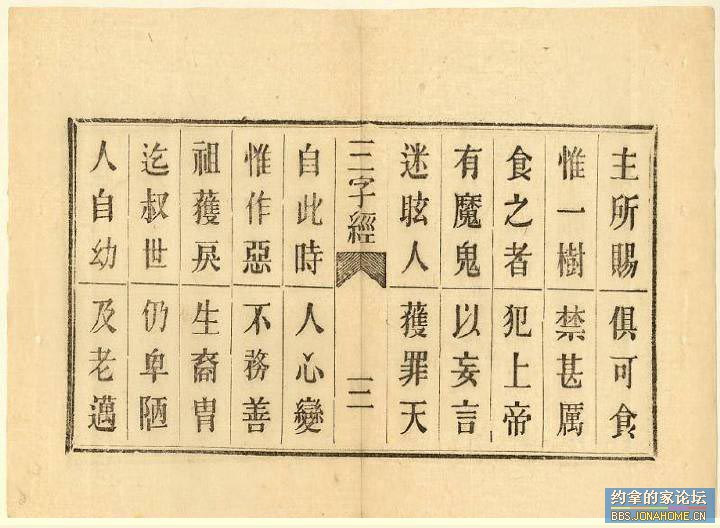 主所賜俱可食
惟一樹禁甚厲
食之者犯上帝
有魔鬼以妄言
迷眩人獲罪天
三字經
三
自此時人心變
惟作惡不務善
祖獲戾生裔冑
迄叔世仍卑陋
人自幼及老邁
约拿的家论坛
BBS.JONAHOME.CN